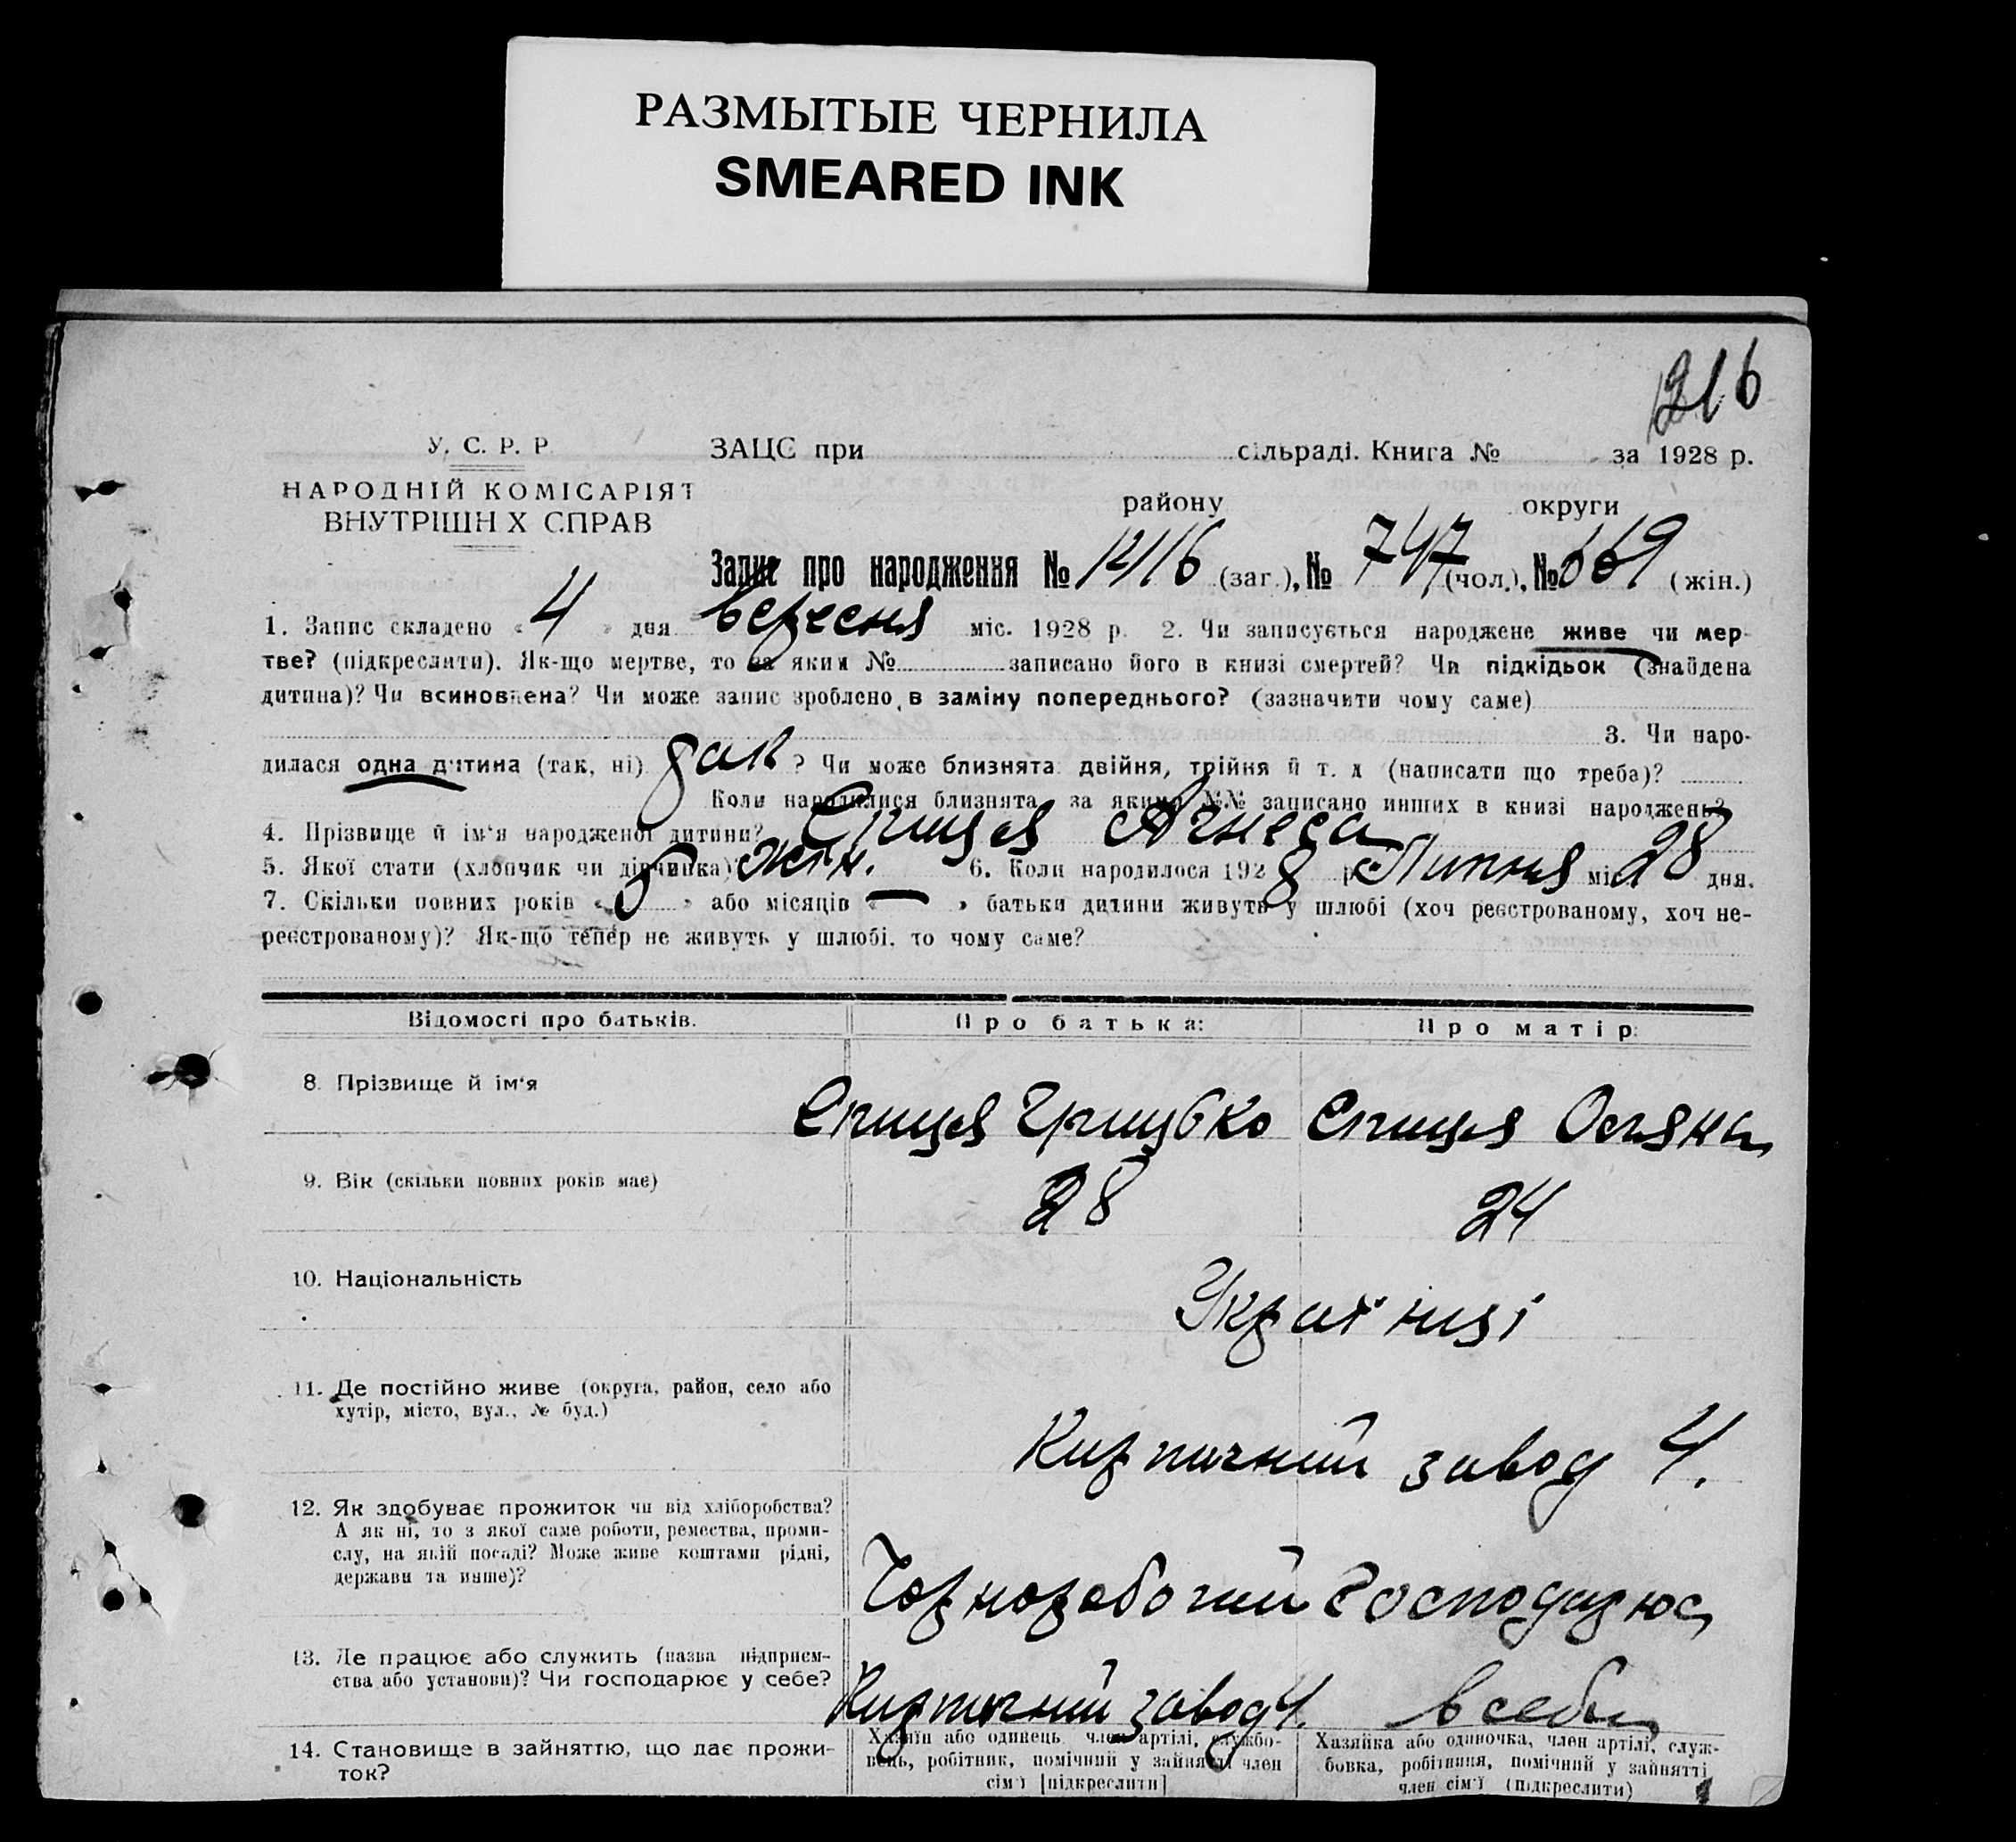 РАЗМЫТЫЕ ЧЕРНИЛА
SMEARED INK
У. С. Р. Р
НАРОДНІЙ КОМІСАРІЯТ
ВНУТРІШН Х СПРАВ
ЗАЦС при сільраді. Книга № за 1928 р.
району округи
Запис про народження № (заг.), № 747 (чол.), № 669 (жін.)
1. Запис складено « 4 » дня вересня міс. 1928 р. 2. Чи записується народжене живе чи мер-
тве? (підкреслити). Як-що мертве, то за яким № записано його в книзі смертей? Чи підкідьок (знайдена
дитина)? Чи всиновлена? Чи може запис зроблено в заміну попереднього? (зазначити чому саме)
3. Чи наро-
дилася одна дитина (так, ні) ? Чи може близнята двійня, трійня й т. д (написати що треба)?
Коли народилися близнята за якими №№ записано инших в книзі народжень?
4. Прізвище й ім'я народженої дитини? Агнеса
5. Якої стати (хлопчик чи дівчинка) жін. 6. Коли народилося 1928 р Липня мі 28 дня.
7. Скільки повних років « » або місяців « — » батьки дитини живуть у шлюбі (хоч реєстрованому, хоч не-
реєстрованому)? Як-що тепер не живуть у шлюбі, то чому саме?
Відомості про батьків. Про батька: Про матір:
8. Прізвище й ім'я
9. Вік (скільки повних років має) 28 24
10. Національність Українці
11. Де постійно живе (округа, район, село або
хутір, місто, вул., № буд.)
Кирпичний завод 4.
12. Як здобуває прожиток чи від хліборобства?
А як ні, то з якої саме роботи, ремества, проми-
слу, на якій посаді? Може живе коштами рідні,
держави та инше)?
Чорноробочий
13. Де працює або служить (назва підприєм-
ства або установи)? Чи господарює у себе?
Кирпичний завод 4. в себе
14. Становище в зайняттю, що дає прожи-
ток?
Хазяїн або одинець член артілі, службо-
вець, робітник, помічний у зайнятті член
сім'ї [підкреслити]
Хазяйка або одиночка, член артілі, служ-
бовка, робітниця, помічний у зайнятті
член сім'ї (підкреслити)